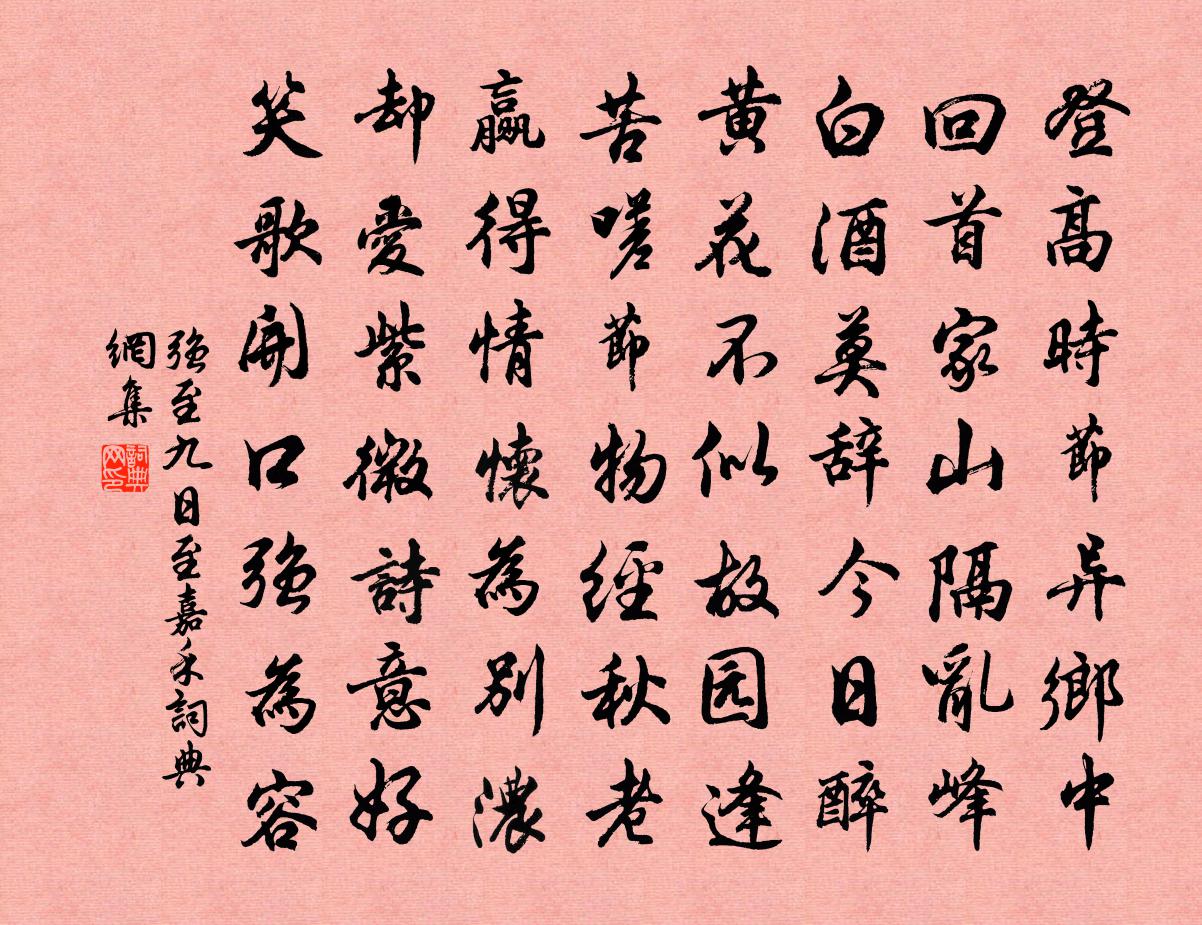 登高時節异鄉中
回首家山隔亂峰
白酒莫辞今日醉
黄花不似故园逢
苦嗟節物經秋老
贏得情懷為別濃
却愛紫微詩意好
笑歌開口强為容
强至九日至嘉禾詞典
網集
詞典
网印